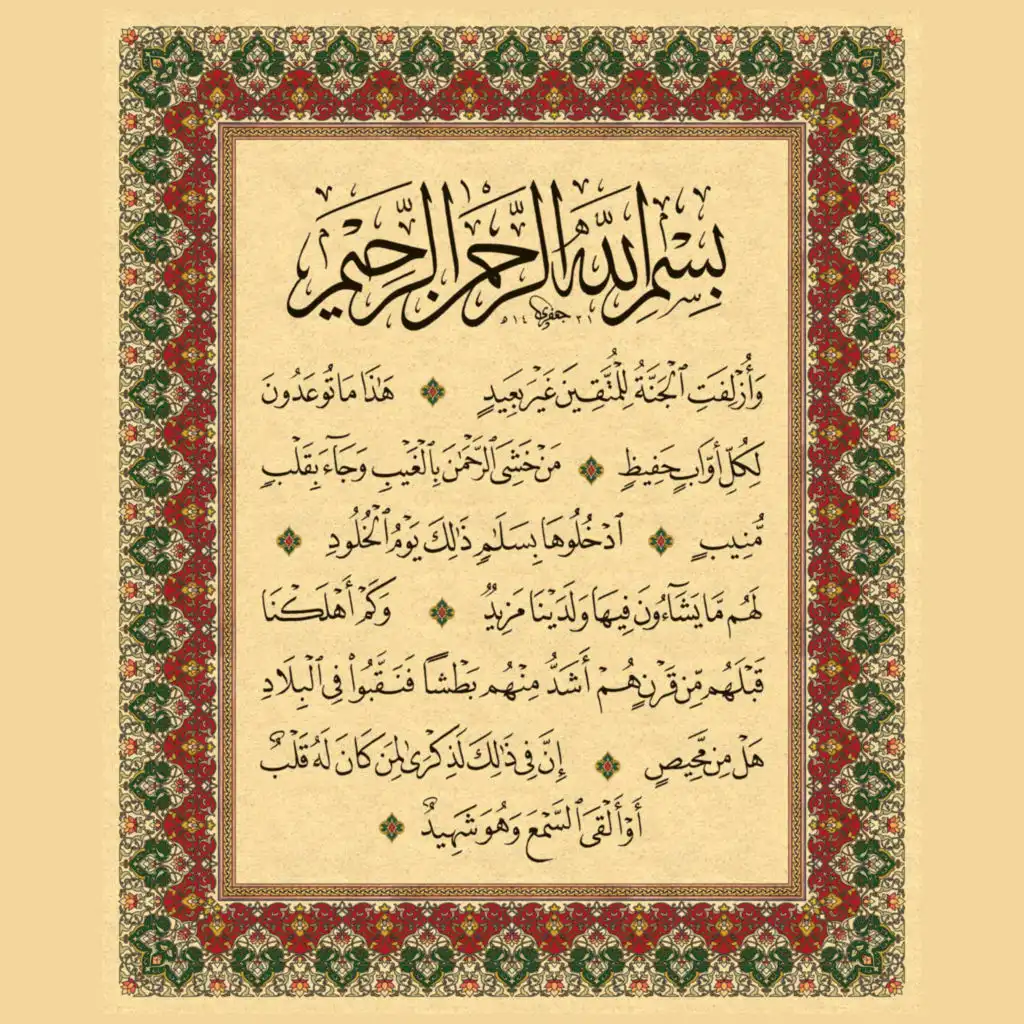 بِسْمِ اللَّهِ الرَّحْمَٰنِ الرَّحِيمِ
جعفري ١٤٢١ه
وَأُزْلِفَتِ ٱلْجَنَّةُ لِلْمُتَّقِينَ غَيْرَ بَعِيدٍ هَٰذَا مَا تُوعَدُونَ
لِكُلِّ أَوَّابٍ حَفِيظٍ مَنْ خَشِىَ ٱلرَّحْمَٰنَ بِٱلْغَيْبِ وَجَآءَ بِقَلْبٍ
مُّنِيبٍ ٱدْخُلُوهَا بِسَلَٰمٍ ذَٰلِكَ يَوْمُ ٱلْخُلُودِ
لَهُم مَّا يَشَآءُونَ فِيهَا وَلَدَيْنَا مَزِيدٌ وَكَمْ أَهْلَكْنَا
قَبْلَهُم مِّن قَرْنٍ هُمْ أَشَدُّ مِنْهُم بَطْشًا فَنَقَّبُوا۟ فِى ٱلْبِلَادِ
هَلْ مِن مَّحِيصٍ إِنَّ فِى ذَٰلِكَ لَذِكْرَىٰ لِمَن كَانَ لَهُۥ قَلْبٌ
أَوْ أَلْقَى ٱلسَّمْعَ وَهُوَ شَهِيدٌ